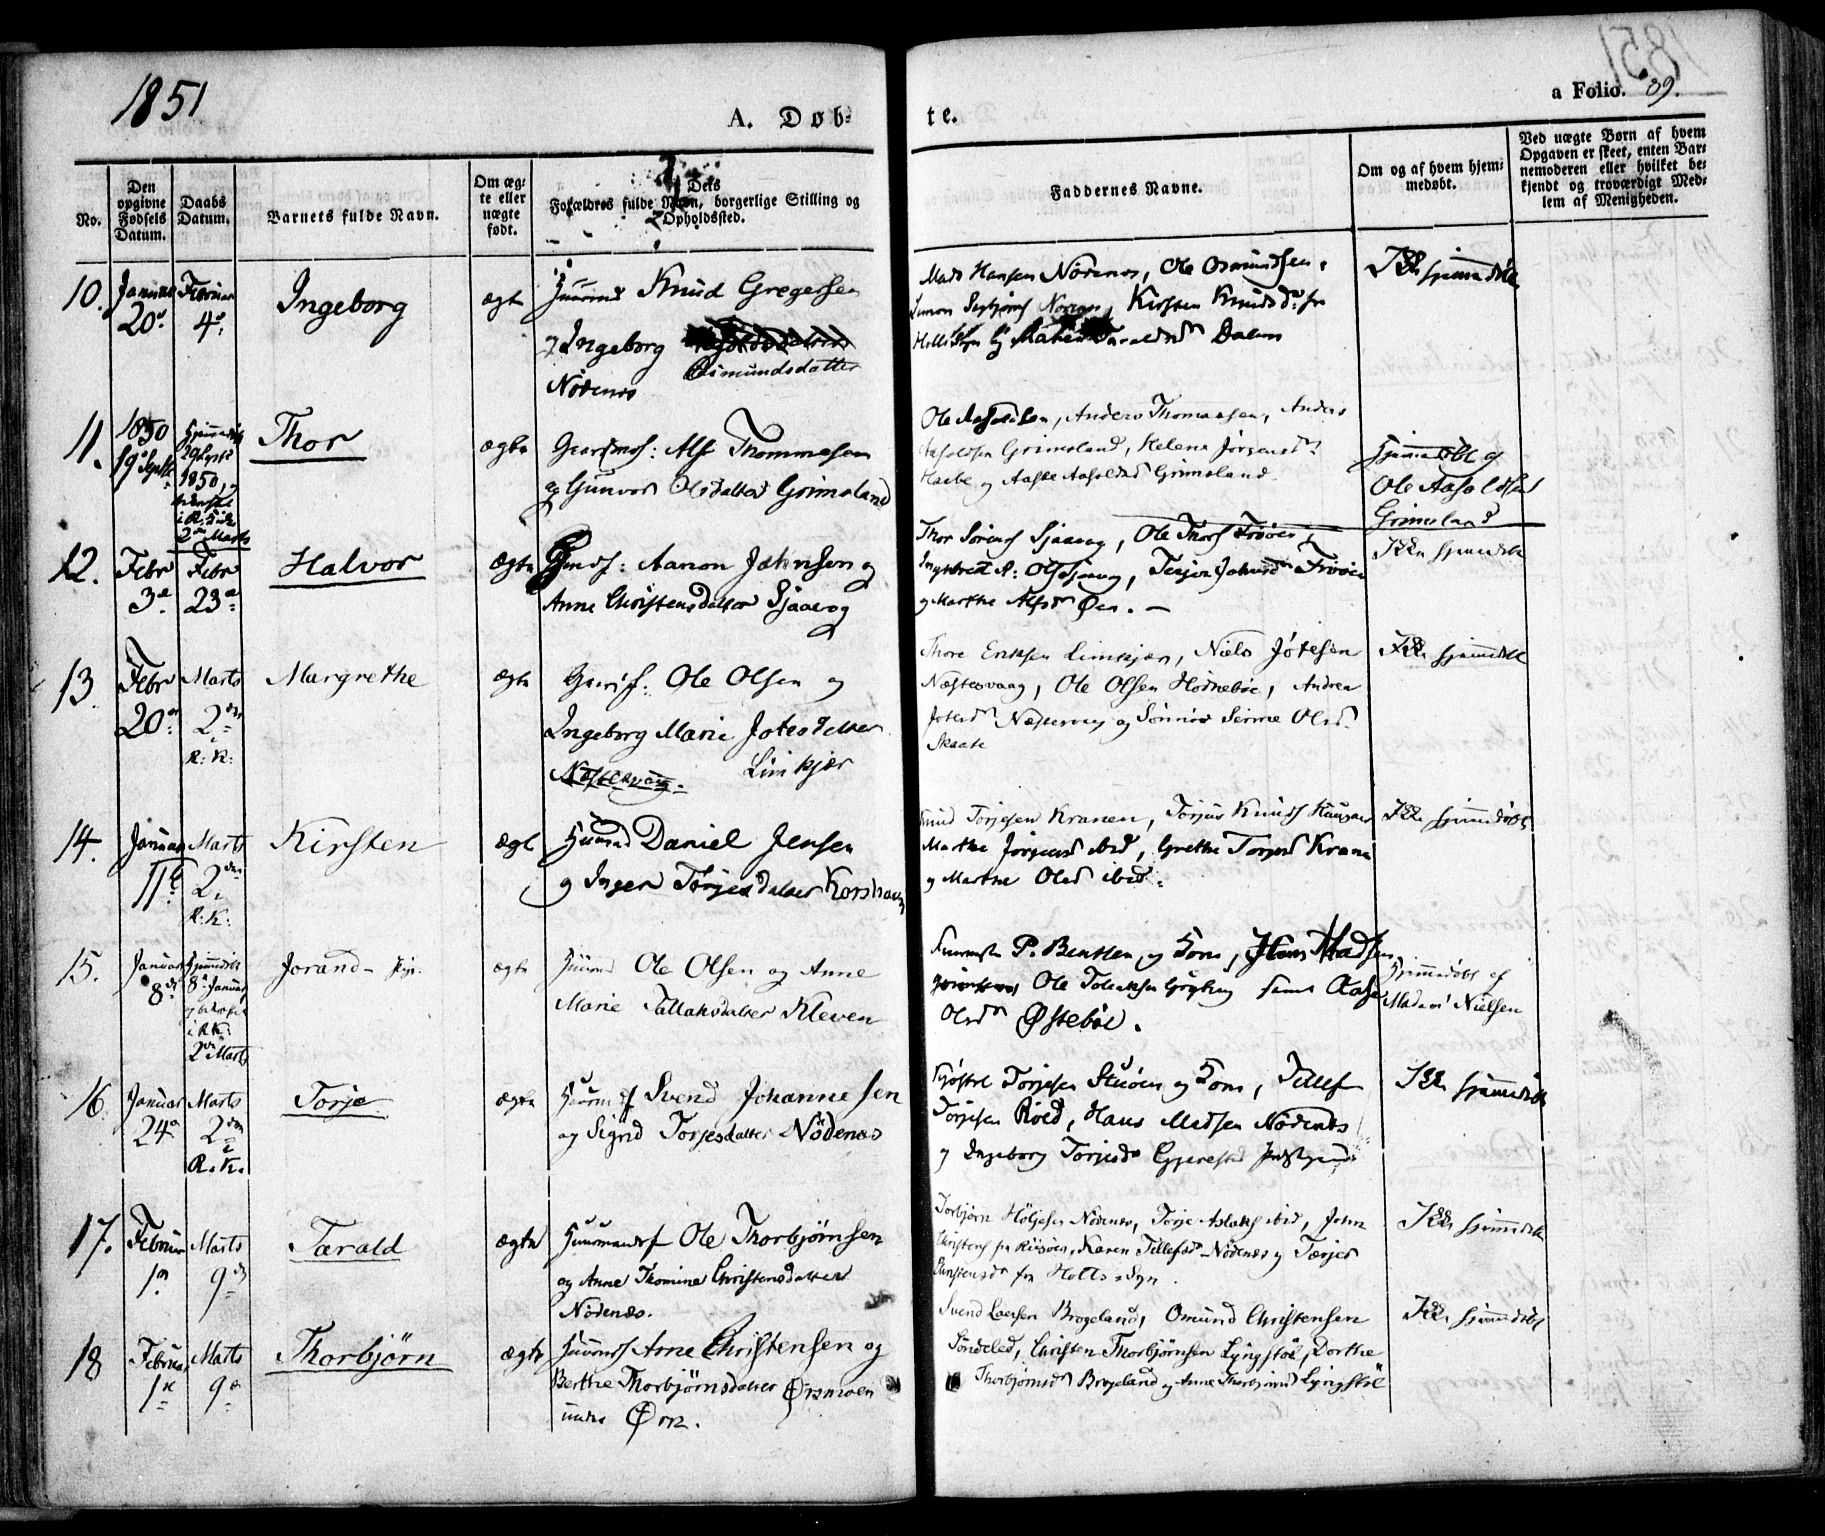 1851
A. Døb-
te.
a Folio. 39.
No.
Den opgivne Fødsels Datum.
Daabs Datum.
Barnets fulde Navn.
Om ægte eller uægte født.
Forældres fulde Navn, borgerlige Stilling og Opholdssted.
Faddernes Navne.
Om og af hvem hjemmedøbt.
Ved uægte Børn af hvem
Opgaven er skeet, enten Bar-
nemoderen eller hvilket be-
kjendt og troværdigt Med-
lem af Menigheden.
10. Januar 20de Februar 4de
Ingeborg
ægte
Knud Gregersen
Ingeborg
Osmundsdatter
Nødenes
Mads Hansen Nødenes, Ole Osmundsen,
Kirsten Knudsd: fra
Taraldsd Dalen
Ikke hjemmedøbt
11. 1850 19de Septbr
29 Septbr 1850,
i R. Kirke
2den Marts
Thor
ægte
Alf Thommesen
og Gunvor Olsdatter Grimsland
Ole Aasoldsen, Anders Thomassen, Anders
Aasoldsen Grimsland, Helene Jørgensd
og Aaste Aasoldsd Grimsland.
hjemmedøbt af
Ole Aasoldsen
Grimsland
12. Febr 3de Febr 23de
Halvor
ægte
Aanon Johnsen og
Anne Christensdatter Sjaavog
Thor Sørens Sjaavog, Ole Thors Frøien,
Terjer Johnsd Frøien
og Marthe Alfsd Øen. —
Ikke hjemmedøbt
13. Febr 20de Marts 2den i R: K:
Margrethe
ægte
Ole Olsen og
Ingeborg Marie Jotesdatter
Næstesvaag. Limkjær
Thore Eriksen Limkjær, Niels Jotesen
Næstesvaag, Ole Olsen Hødnebøe, Andrea
Jotesd Næstesvaag og Olsd
Skaate
Ikke hjemmedøbt
14. Januar 11te Marts 2den i R: K:
Kirsten
ægte
Daniel Jensen
og Inger Torjesdatter Korshaug
Knud Torjesen Kranen, Torjus Knuds
Marthe Jørgensd ibid, Grethe Torjesd Krane
og Marthe Olsd ibid.
Ikke hjemmedøbt
15. Januar 8de
Hjemmedøbt 8de Januar
i R.K. 2den Marts
Jorand
ægte
Ole Olsen og Anne
Marie Tallaksdatter Kleven
P. Bentsen og Kone, Hans Madsen
Ole Tollaksen samt Aase
Olsd Østebøe.
Hjemmedøbt af
Madam Nielsen
16. Januar 24de Marts 2den i R. K.
Torje
ægte
Svend Johannesen
og Sigrid Torjesdatter Nødenes
Torjesen Stuøen og Kone, Tellef
Torjesen Røed, Hans Madsen Nødenes
og Ingeborg Torjesd Gjerestad
Ikke hjemmedøbt
17. Februar 1ste Marts 9de
Tarald
ægte
Ole Thorbjørnsen
og Anne Thomine Christensdatter
Nødenes.
Torbjørn Høljesen Nødenes, Torje Aslaks ibid, John
Christens fra Riisøen, Karen Tellefsd Nødenes og
Christensd fra Holts-Sgn.
Ikke hjemmedøbt
18 Februar 1ste Marts 9de
Thorbjørn
ægte
Arne Christensen og
Berthe Thorbjørnsdatter Ørsmoen
under Ørn.
Svend Larsen Brogeland, Omund Christensen
Søndeled, Christen Thorbjørnsen Lyngstøl, Dorthe
Thorbjørnsd Brogeland og Anne Thorbjørnsd Lyngstøl
Ikke hjemmedøbt